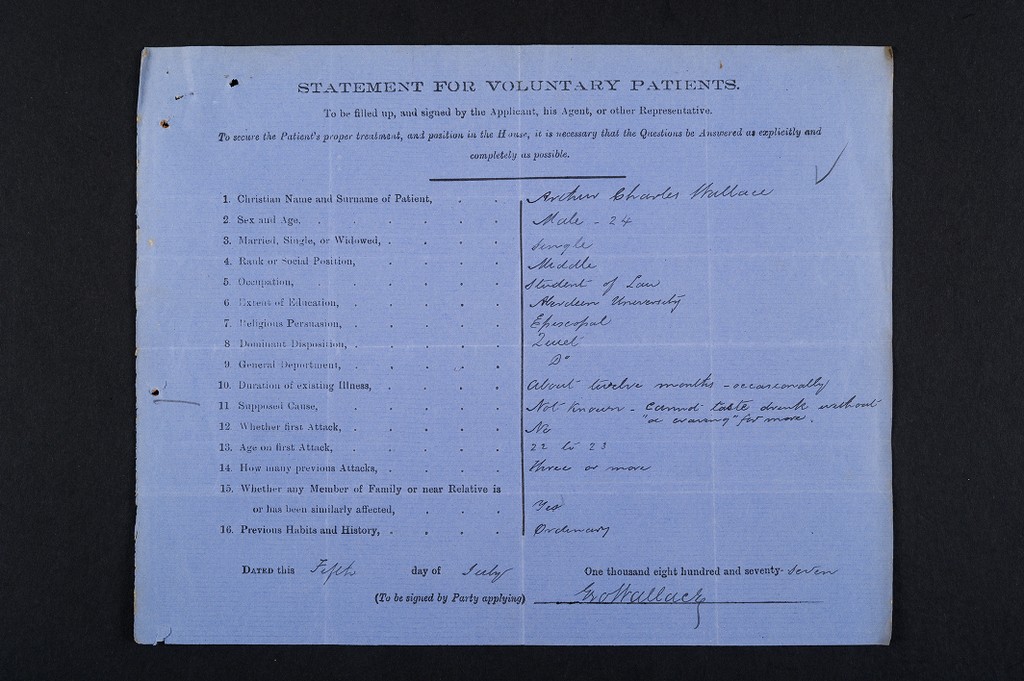 STATEMENT FOR VOLUNTARY PATIENTS.
To be filled up, and signed by the Applicant, his Agent, or other Representative.
To secure the Patient's proper treatment, and position in the House, it is necessary that the Questions be Answered as explicitly and
completely as possible.
1. Christian Name and Surname of Patient, Arthur Charles Wallace
2. Sex and Age, Male - 24
3. Married, Single, or Widowed, Single
4. Rank or Social Position, Middle
5. Occupation, Student of Law
6 Extent of Education, Aberdeen University
7. Religious Persuasion, Episcopal
8 Dominant Disposition, Quiet
9. General Deportment, Do
10. Duration of existing Illness, About twelve months - occasionally
11 Supposed Cause, Not known - Cannot taste drink without
"a craving" for more.
12. Whether first Attack, No
13. Age on first Attack, 22 to 23
14. How many previous Attacks, three or more
15. Whether any Member of Family or near Relative is
or has been similarly affected, Yes
16. Previous Habits and History, Ordinary
DATED this Fifth day of July One thousand eight hundred and seventy-seven
(To be signed by Party applying) Geo Wallace